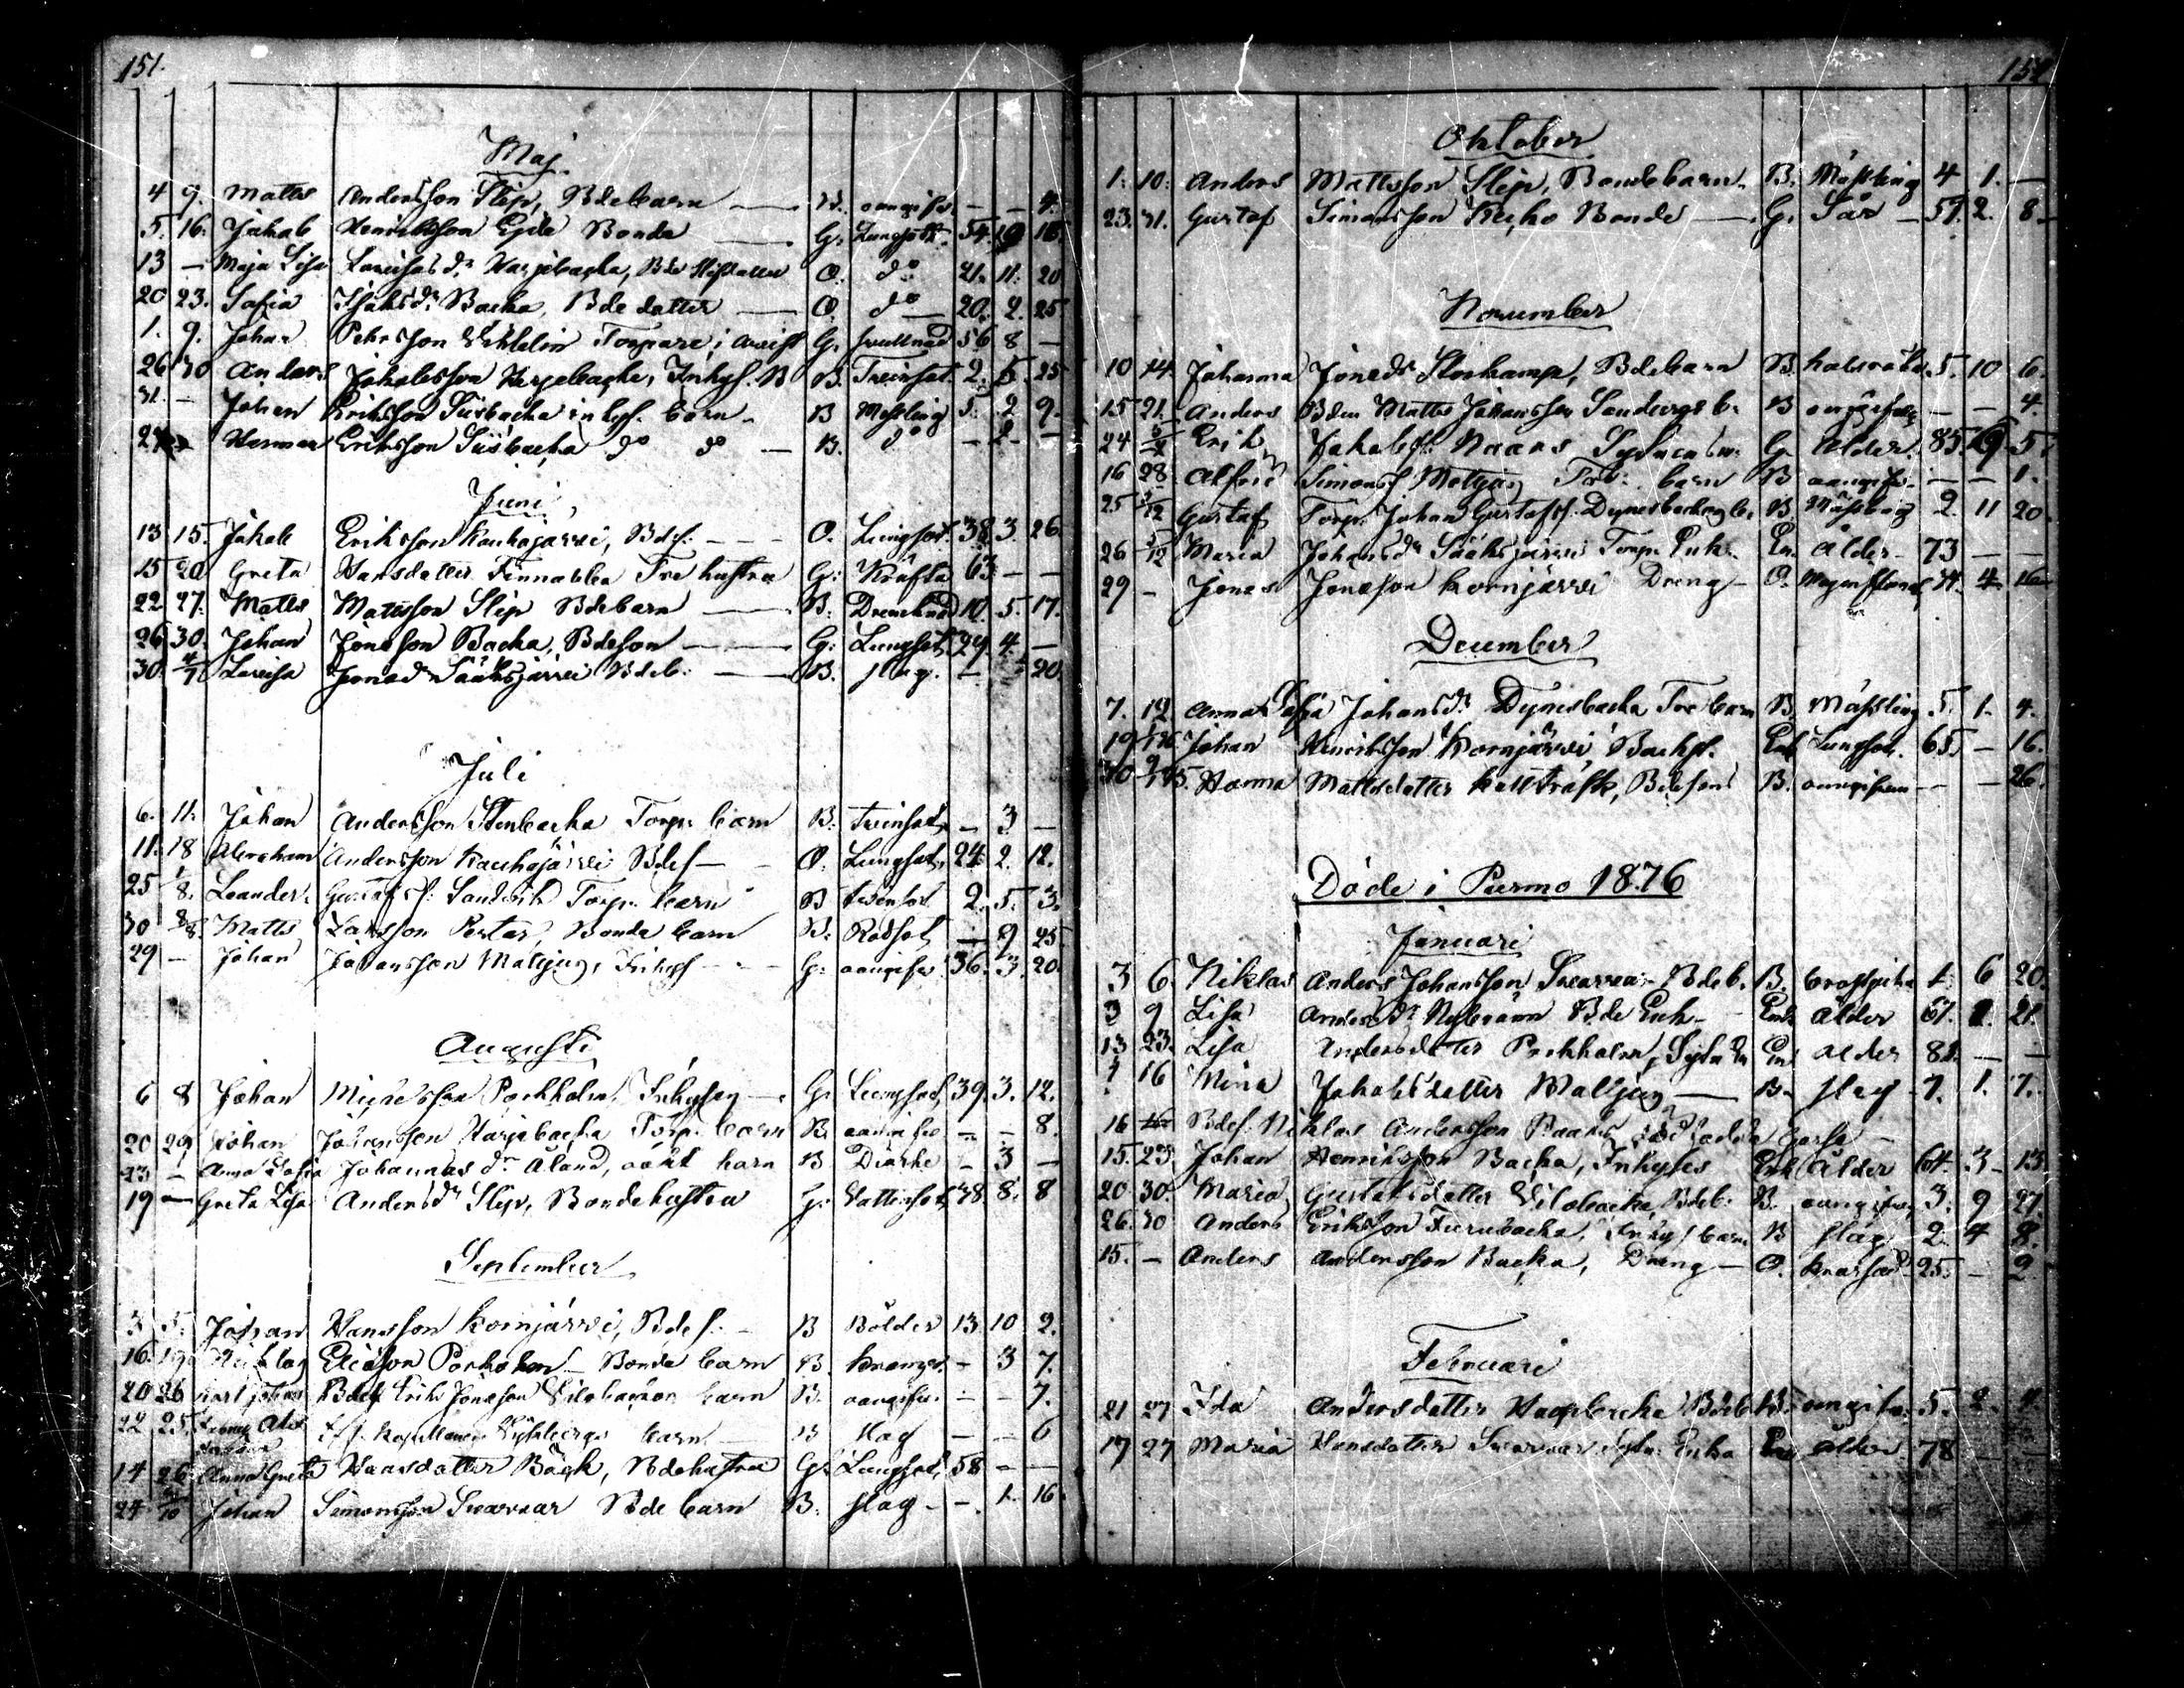 151.
Maj.
4 9. Matts Andersson Slip, Bdebarn — B. oangifv. — — 4.
5. 16. Jakob Henriksson Gjile Bonde — G. Lungsot. 54. 10 16.
13 — Maja Lisa Lovisas dr Harjebacka, Bde O. do 21. 11. 20
20 23. Sofia Isaks dr Backa, Bde dotter — O. do — 20. 2. 25
1. 9. Johan Petersson Torpare i G. 56 8 —
26 30 Anders Jakobsson Harjebacka, Inhys. B B. Tvinsot. 2. 5. 25
31. — Johan Eriksson Siisbacka inhys. barn. B Messling 5. 2 9.
Herman Eriksson Siisbacka do do — B. do — 2 —
Juni
13 15. Jakob Eriksson Kauhajärvi, Bdes. — — O. Lungsot. 38 3. 26.
15 20 Greta Hansdotter Finnabba Tre hustru G. Kräfta 63 — —
22 27. Matts Mattsson Slip Bdebarn — B. Drunknad 10. 5. 17.
26 30. Johan Jonsson Backa, Bdeson — G. Lungsot 29. 4. —
30. 4/7 Lovisa Jonas dr Sääksjärvi Bdeb. — B. slag. — 20.
Juli
6. 11. Johan Andersson Stenbacka Torp. barn B. Tvinsot — 3 —
11. 18 Abraham Andersson Kauhajärvi Bdes — O. Lungsot. 24 2. 12.
25 1/8. Leander. Gustafs s. Sandvik Torp. barn B tvinsot 2. 5. 3.
30 8/8. Matts Larsson Portas, Bonde barn B. Rödsot — 9 25
29 — Johan Johansson Matjus, Inhys — — G. oangifv. 36. 3. 20.
Augusti
6 8 Johan Mickelsson Porkholm, Inhysing — G. Lungsot 39. 3. 12.
20 29 Johan Johansson Harjebacka Torp. barn B. oangifv — — 8.
23 — Anna Sofia Johannas dr Åland, oäkt barn B Diarhe — 3 —
19 — Greta Lisa Anders dr Slip, Bondehustru G. Vattensot 48. 8. 8
September
3 5. Johan Hansson Kornjärvi, Bdes. — B Bölder 13 10 2.
16. 19. Niklas Ericson Porkholm — Bonde barn B. — 3 7.
20 26 Karl Johan Bdes Erik Jonsson barn B. oangifv. — — 7.
22 25. barn — B slag — — 6
14 26. Anna Greta Hansdotter Bäck, Bdehustru G. Lungsot, 58 — —
24 Johan Simonsson Svarvar Bde barn B. slag — —. 1. 16.
Oktober
1. 10. Anders Mattsson Slip, Bondebarn. B. Mässling 4 1. —
23. 31. Gustaf Simonsson Kecho Bonde — G. Sår — 59. 2. 8.
November
10 14. Johanna Jonas dr Storkamp, Bdebarn B. halsröta 5. 10 6.
15 21. Anders Bden Matts Johansson Sandbergs b. B oangifven — — 4.
24 Erik Jakobs s. Naars G. Ålder. 85. 9. 5.
16 28 Alfred Simonss Matjus Torp. barn B oangifv. — — 1.
25 3/12 Gustaf Torp. Johan Gustafss. Dynesbacka b. B. Mässling 2. 11 20.
26 5/12 Maria Johans dr Sääksjärvi Torp. Enk. En. Ålder — 73 — —
29 — Jonas Jonsson Kornjärvi Dreng — O. 4 16
December
7. 12. Anna Sofia Johans dr Dynesbacka Tre barn B. Mässling 5. 1. 4.
19 Johan Henriksson Kornjärvi Backst. Enk Lungsot. 65. — 16.
30 Hanna Mattsdotter Kallträsk, B. oangifven — — 26.
Döde i Purmo 1876
Januari
3 6. Niklas Anders Johansson Svarvar. Bdeb. B. 1. 6 20.
3 9 Lisa Anders dr Nybrånn Bde Enk — Enk Ålder 67. 2. 21.
13 23. Lisa Andersdotter Porkholm, En Ålder 81. — —
16 Mina Jakobsdotter Matjus — B. slag 7. 1. 7.
16 Bdes. Niklas Andersson Naars —
15. 23. Johan Henriksson Backa, Inhyses Enk Ålder 64. 3. 13
20 30. Maria Gustafsdotter Bdeb. B. oangifven 3. 9 27.
26. 30 Anders Eriksson Furubacka, Inhys barn B slag 2. 4 8.
15. — Anders Andersson Backa, Dreng — O. 25. — 2
Februari
21 27 Ida Andersdotter Bdeb. B. oangifv. 5. 2.
17 27 Maria Hansdotter Svarvar Enka En Ålder 78 —